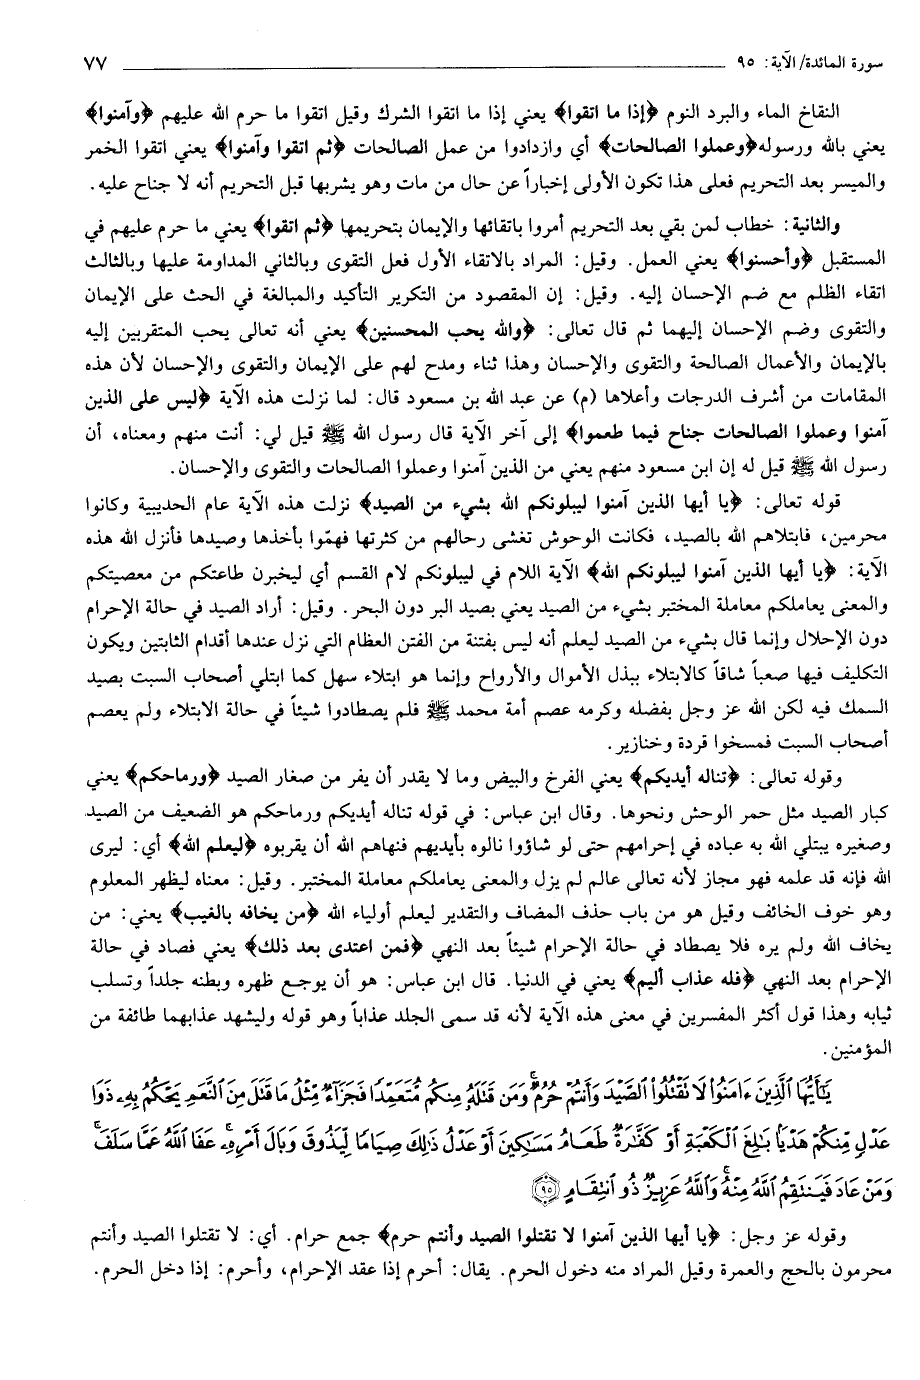 سورة المائدة/ الآية: ٩٥ ٧٧
النقاخ الماء والبرد النوم ﴿إذا ما اتقوا﴾ يعني إذا ما اتقوا الشرك وقيل اتقوا ما حرم الله عليهم ﴿وآمنوا﴾
يعني بالله ورسوله﴿وعملوا الصالحات﴾ أي وازدادوا من عمل الصالحات ﴿ثم اتقوا وآمنوا﴾ يعني اتقوا الخمر
والميسر بعد التحريم فعلى هذا تكون الأولى إخباراً عن حال من مات وهو يشربها قبل التحريم أنه لا جناح عليه.
والثانية: خطاب لمن بقي بعد التحريم أمروا باتقائها والإيمان بتحريمها ﴿ثم اتقوا﴾ يعني ما حرم عليهم في
المستقبل ﴿وأحسنوا﴾ يعني العمل. وقيل: المراد بالاتقاء الأول فعل التقوى وبالثاني المداومة عليها وبالثالث
اتقاء الظلم مع ضم الإحسان إليه. وقيل: إن المقصود من التكرير التأكيد والمبالغة في الحث على الإيمان
والتقوى وضم الإحسان إليهما ثم قال تعالى: ﴿والله يحب المحسنين﴾ يعني أنه تعالى يحب المتقربين إليه
بالإيمان والأعمال الصالحة والتقوى والإحسان وهذا ثناء ومدح لهم على الإيمان والتقوى والإحسان لأن هذه
المقامات من أشرف الدرجات وأعلاها (م) عن عبد الله بن مسعود قال: لما نزلت هذه الآية ﴿ليس على الذين
آمنوا وعملوا الصالحات جناح فيما طعموا﴾ إلى آخر الآية قال رسول الله ﷺ قيل لي: أنت منهم ومعناه، أن
رسول الله ﷺ قيل له إن ابن مسعود منهم يعني من الذين آمنوا وعملوا الصالحات والتقوى والإحسان.
قوله تعالى: ﴿يا أيها الذين آمنوا ليبلونكم الله بشيء من الصيد﴾ نزلت هذه الآية عام الحديبية وكانوا
محرمين، فابتلاهم الله بالصيد، فكانت الوحوش تغشى رحالهم من كثرتها فهمّوا بأخذها وصيدها فأنزل الله هذه
الآية: ﴿يا أيها الذين آمنوا ليبلونكم الله﴾ الآية اللام في ليبلونكم لام القسم أي ليخبرن طاعتكم من معصيتكم
والمعنى يعاملكم معاملة المختبر بشيء من الصيد يعني بصيد البر دون البحر. وقيل: أراد الصيد في حالة الإحرام
دون الإحلال وإنما قال بشيء من الصيد ليعلم أنه ليس بفتنة من الفتن العظام التي نزل عندها أقدام الثابتين ويكون
التكليف فيها صعباً شاقاً كالابتلاء ببذل الأموال والأرواح وإنما هو ابتلاء سهل كما ابتلي أصحاب السبت بصيد
السمك فيه لكن الله عز وجل بفضله وكرمه عصم أمة محمد ﷺ فلم يصطادوا شيئاً في حالة الابتلاء ولم يعصم
أصحاب السبت فمسخوا قردة وخنازير.
وقوله تعالى: ﴿تناله أيديكم﴾ يعني الفرخ والبيض وما لا يقدر أن يفر من صغار الصيد ﴿ورماحكم﴾ يعني
كبار الصيد مثل حمر الوحش ونحوها. وقال ابن عباس: في قوله تناله أيديكم ورماحكم هو الضعيف من الصيد
وصغيره يبتلي الله به عباده في إحرامهم حتى لو شاؤوا نالوه بأيديهم فنهاهم الله أن يقربوه ﴿ليعلم الله﴾ أي: ليرى
الله فإنه قد علمه فهو مجاز لأنه تعالى عالم لم يزل والمعنى يعاملكم معاملة المختبر. وقيل: معناه ليظهر المعلوم
وهو خوف الخائف وقيل هو من باب حذف المضاف والتقدير ليعلم أولياء الله ﴿من يخافه بالغيب﴾ يعني: من
يخاف الله ولم يره فلا يصطاد في حالة الإحرام شيئاً بعد النهي ﴿فمن اعتدى بعد ذلك﴾ يعني فصاد في حالة
الإحرام بعد النهي ﴿فله عذاب أليم﴾ يعني في الدنيا. قال ابن عباس: هو أن يوجع ظهره وبطنه جلداً وتسلب
ثيابه وهذا قول أكثر المفسرين في معنى هذه الآية لأنه قد سمى الجلد عذاباً وهو قوله وليشهد عذابهما طائفة من
المؤمنين.
يَٰٓأَيُّهَا ٱلَّذِينَ ءَامَنُوا۟ لَا تَقْتُلُوا۟ ٱلصَّيْدَ وَأَنتُمْ حُرُمٌ ۚ وَمَن قَتَلَهُۥ مِنكُم مُّتَعَمِّدًا فَجَزَآءٌ مِّثْلُ مَا قَتَلَ مِنَ ٱلنَّعَمِ يَحْكُمُ بِهِۦ ذَوَا
عَدْلٍ مِّنكُمْ هَدْيًۢا بَٰلِغَ ٱلْكَعْبَةِ أَوْ كَفَّٰرَةٌ طَعَامُ مَسَٰكِينَ أَوْ عَدْلُ ذَٰلِكَ صِيَامًا لِّيَذُوقَ وَبَالَ أَمْرِهِۦ ۗ عَفَا ٱللَّهُ عَمَّا سَلَفَ ۚ
وَمَنْ عَادَ فَيَنتَقِمُ ٱللَّهُ مِنْهُ ۗ وَٱللَّهُ عَزِيزٌ ذُو ٱنتِقَامٍ ﴿٩٥﴾
وقوله عز وجل: ﴿يا أيها الذين آمنوا لا تقتلوا الصيد وأنتم حرم﴾ جمع حرام. أي: لا تقتلوا الصيد وأنتم
محرمون بالحج والعمرة وقيل المراد منه دخول الحرم. يقال: أحرم إذا عقد الإحرام، وأحرم: إذا دخل الحرم.